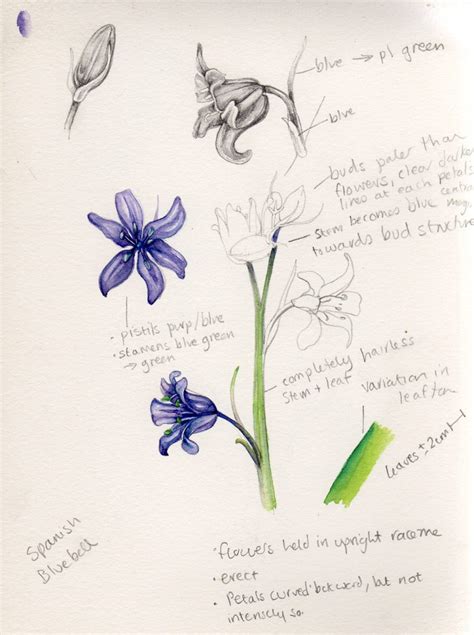 blue → pl green
blue
buds paler than
flowers, clear darker
lines at each petals
centre
stem becomes blue
towards bud structure
pistils purp/blue
stamens blue green
→ green
completely hairless
stem + leaf
variation in
leaf
leaves ± 2cm
Spanish
Bluebell
· flowers held in upright raceme
· erect
· Petals curved backward, but not
intensely so.